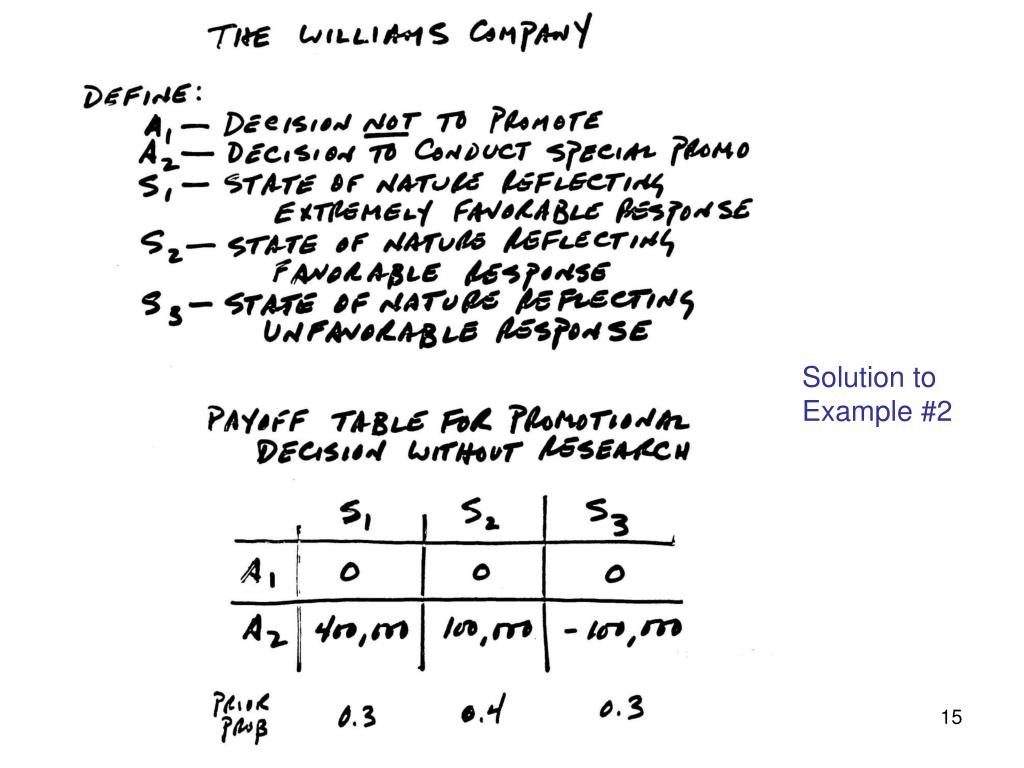 THE WILLIAMS COMPANY
DEFINE:
A1 — DECISION NOT TO PROMOTE
A2 — DECISION TO CONDUCT SPECIAL PROMO
S1 — STATE OF NATURE REFLECTING
EXTREMELY FAVORABLE RESPONSE
S2 — STATE OF NATURE REFLECTING
FAVORABLE RESPONSE
S3 — STATE OF NATURE REFLECTING
UNFAVORABLE RESPONSE
Solution to
Example #2
PAYOFF TABLE FOR PROMOTIONAL
DECISION WITHOUT RESEARCH
S1 S2 S3
A1 0 0 0
A2 400,000 100,000 -100,000
PRIOR
PROB 0.3 0.4 0.3
15